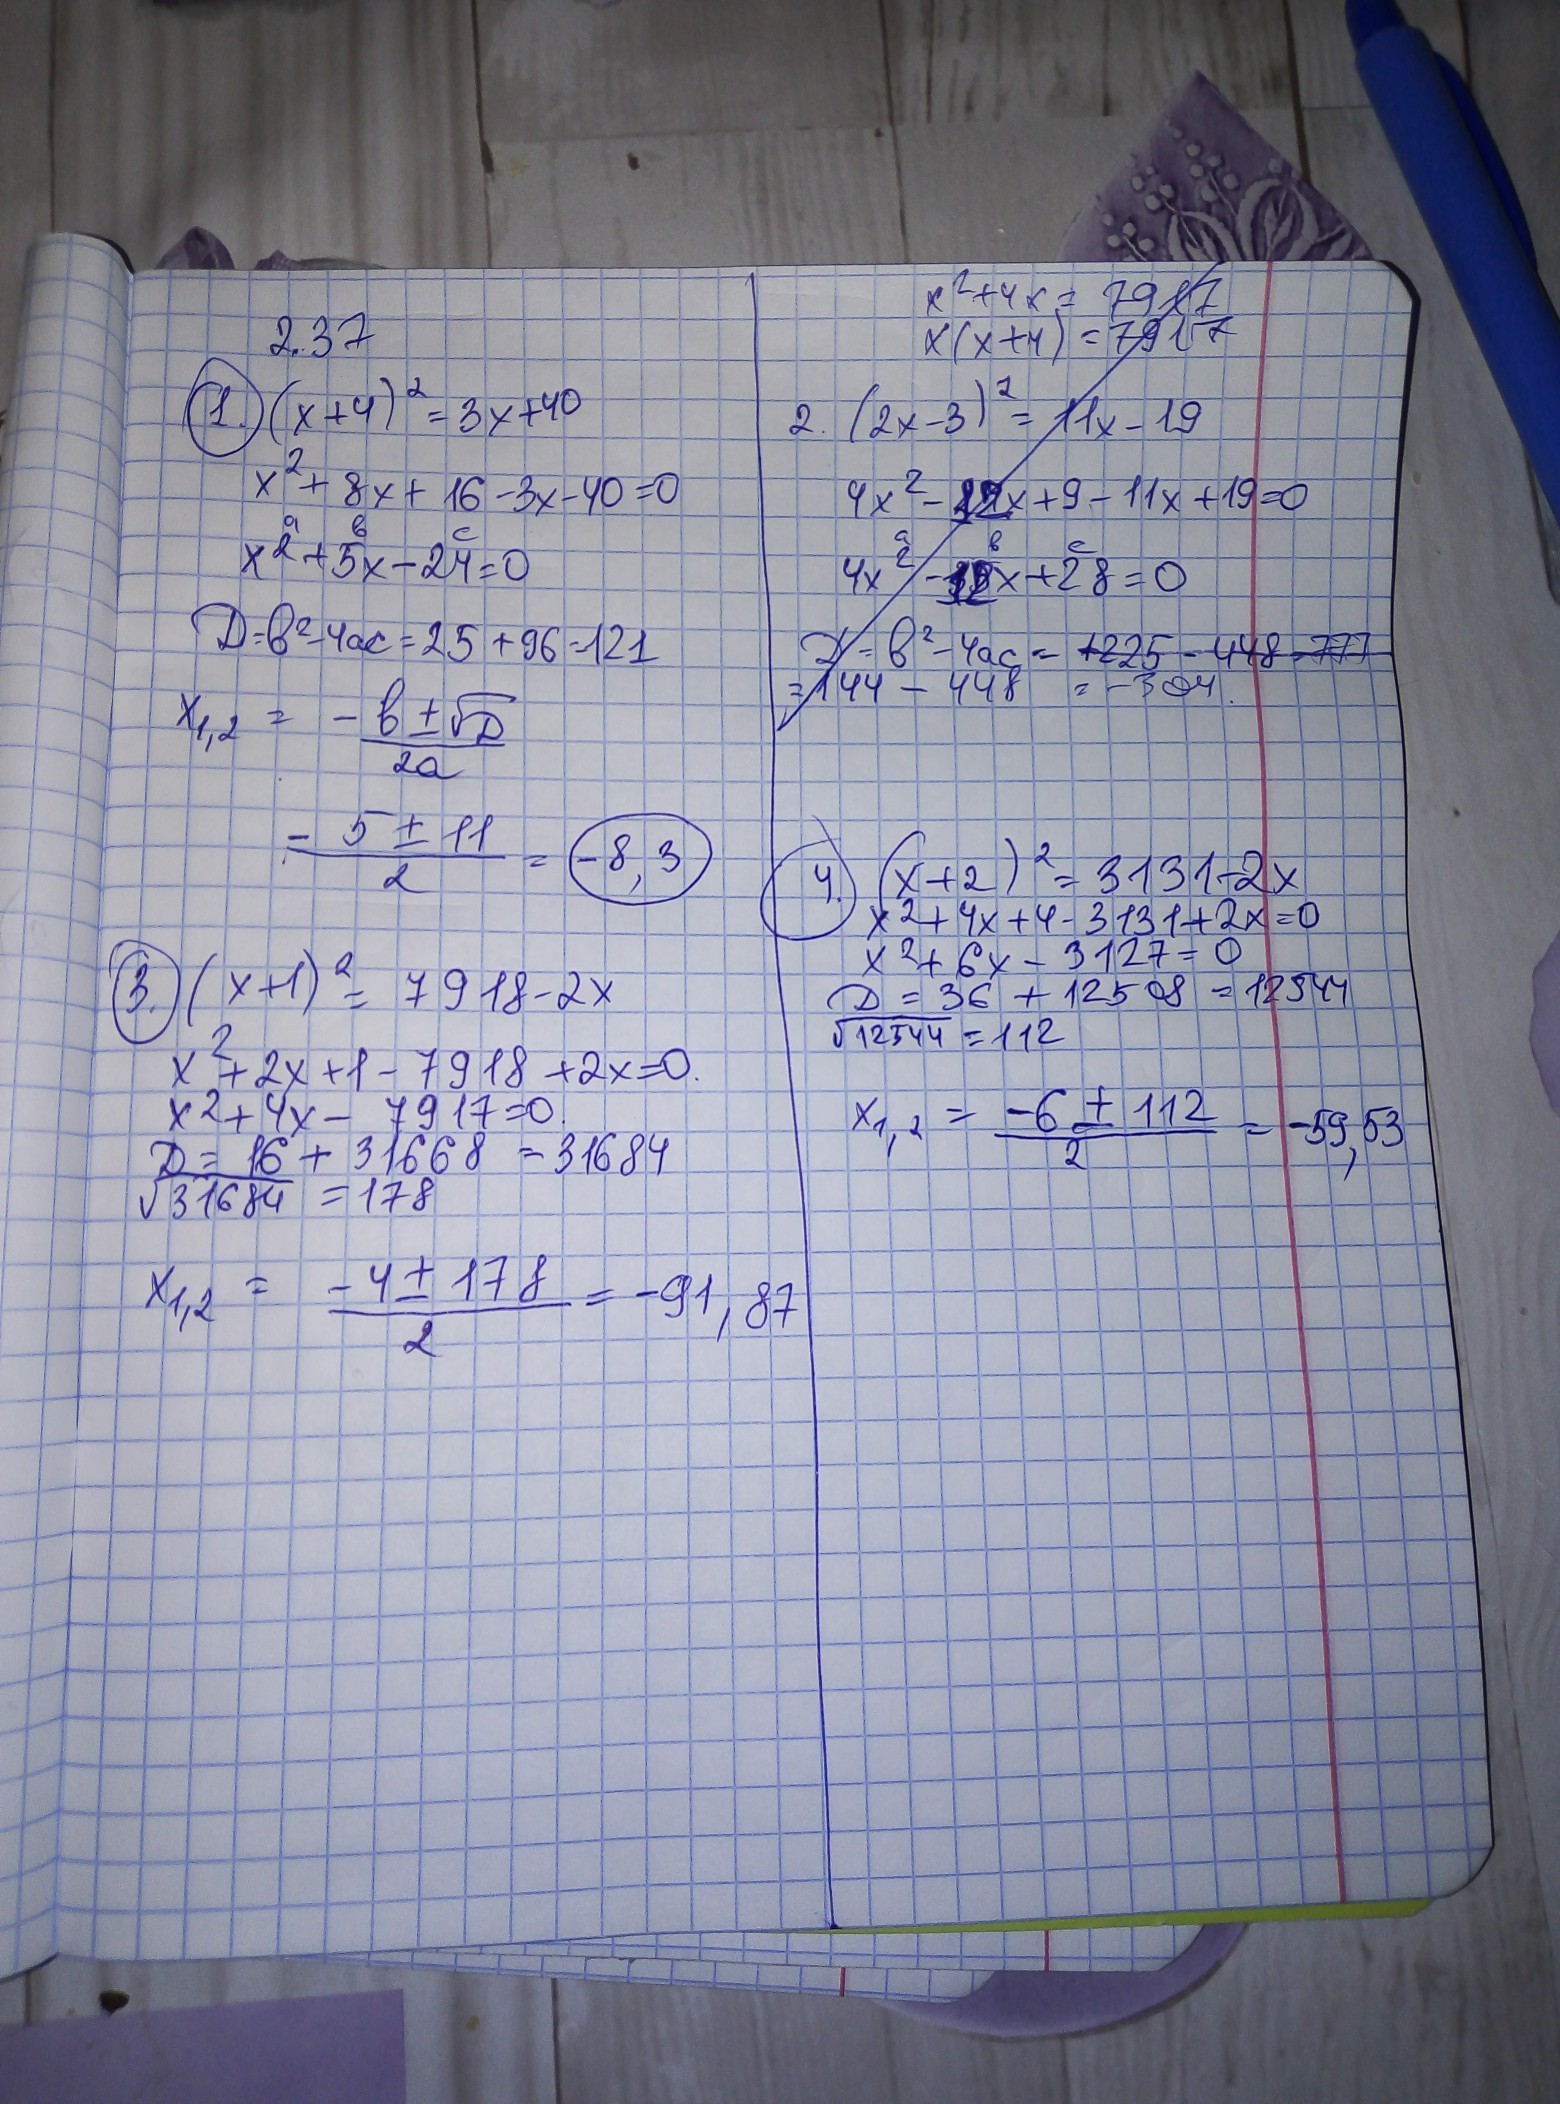 2.37
1. (x+4)² = 3x+40
x² + 8x + 16 - 3x - 40 = 0
a в c
x² + 5x - 24 = 0
D = в² - 4ac = 25 + 96 = 121
x₁,₂ = -в ± √D / 2a
- 5 ± 11 / 2 = -8, 3
3. (x+1)² = 7918 - 2x
x² + 2x + 1 - 7918 + 2x = 0.
x² + 4x - 7917 = 0.
D = 16 + 31668 = 31684
√31684 = 178
x₁,₂ = -4 ± 178 / 2 = -91, 87
x² + 4x = 7917
x(x+4) = 7917
2. (2x-3)² = 11x - 19
4x² - 12x + 9 - 11x + 19 = 0
a в c
4x² - x + 28 = 0
D = в² - 4ac = +225 - 448 = 777
= 144 - 448 = -304.
4. (x+2)² = 3131 - 2x
x² + 4x + 4 - 3131 + 2x = 0
x² + 6x - 3127 = 0
D = 36 + 12508 = 12544
√12544 = 112
x₁,₂ = -6 ± 112 / 2 = -59, 53